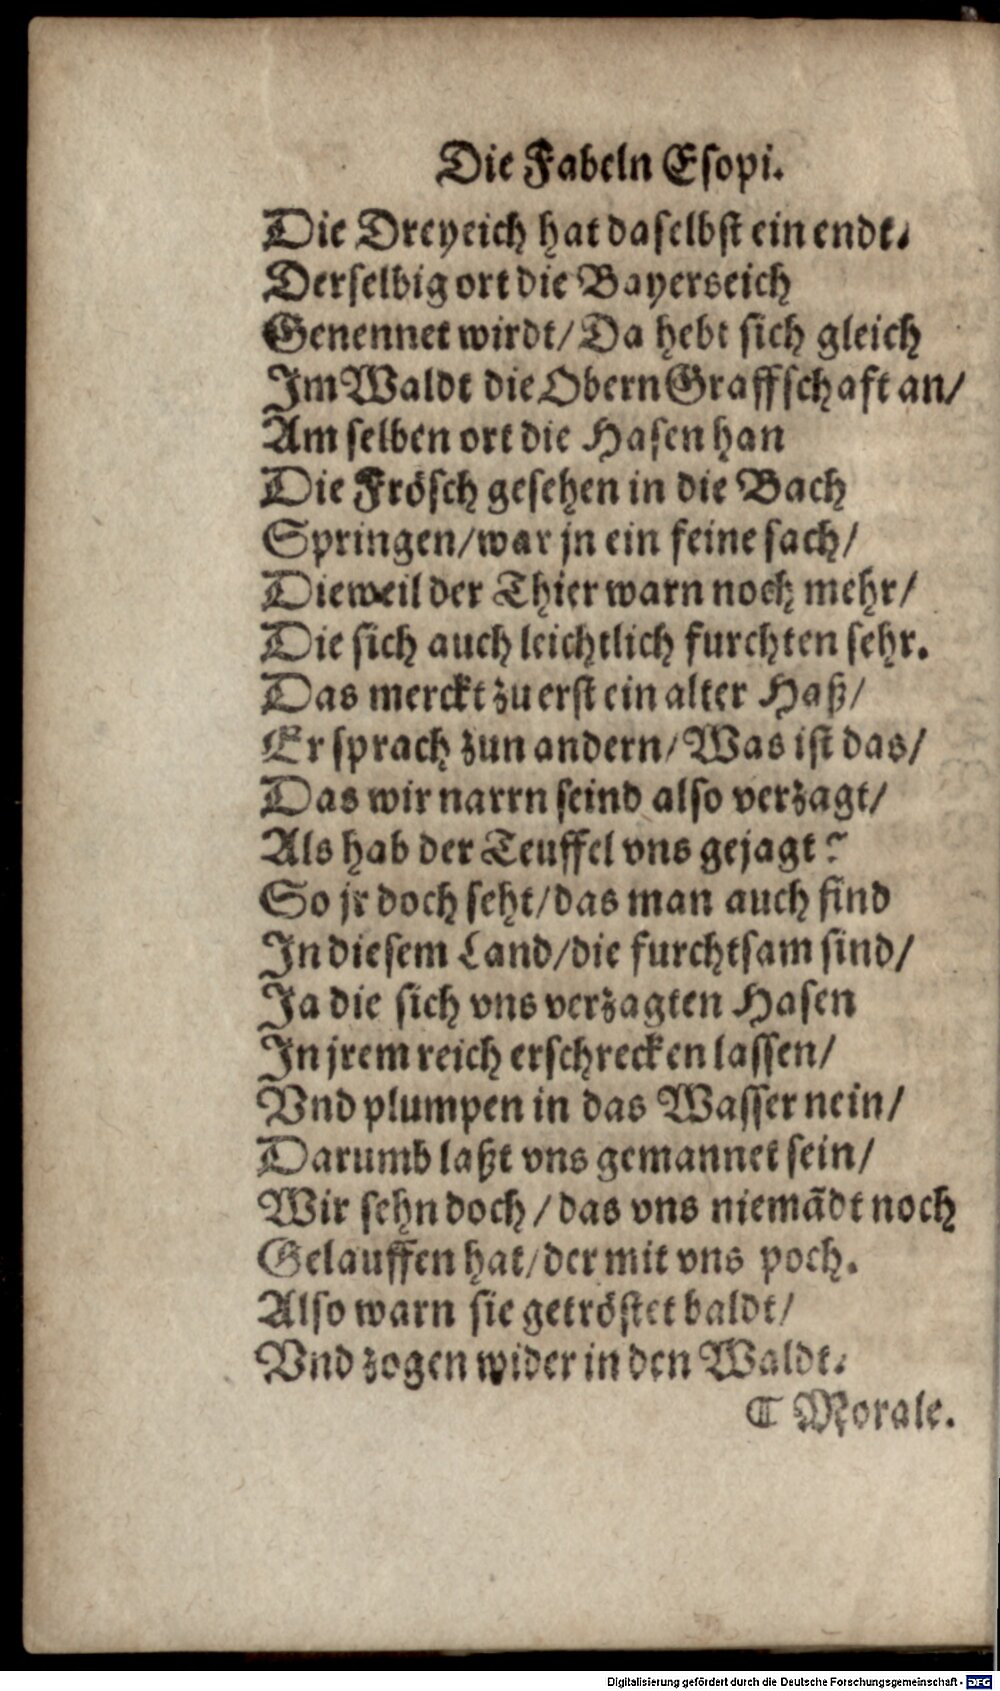 Die Fabeln Esopi.
Die Dreyeich hat daselbst ein endt.
Derselbig ort die Bayerseich
Genennet wirdt/ Da hebt sich gleich
Im Waldt die Obern Graffschaft an/
Am selben ort die Hasen han
Die Frösch gesehen in die Bach
Springen/ war jn ein feine sach/
Dieweil der Thier warn noch mehr/
Die sich auch leichtlich furchten sehr.
Das merckt zu erst ein alter Haß/
Er sprach zun andern/ Was ist das/
Das wir narrn seind also verzagt/
Als hab der Teuffel vns gejagt?
So jr doch seht/ das man auch find
In diesem Land/ die furchtsam sind/
Ja die sich vns verzagten Hasen
In jrem reich erschrecken lassen/
Vnd plumpen in das Wasser nein/
Darumb laßt vns gemannet sein/
Wir sehn doch/ das vns niemãdt noch
Gelauffen hat/ der mit vns poch.
Also warn sie getröstet baldt/
Vnd zogen wider in den Waldt.
¶ Morale.
Digitalisierung gefördert durch die Deutsche Forschungsgemeinschaft - DFG